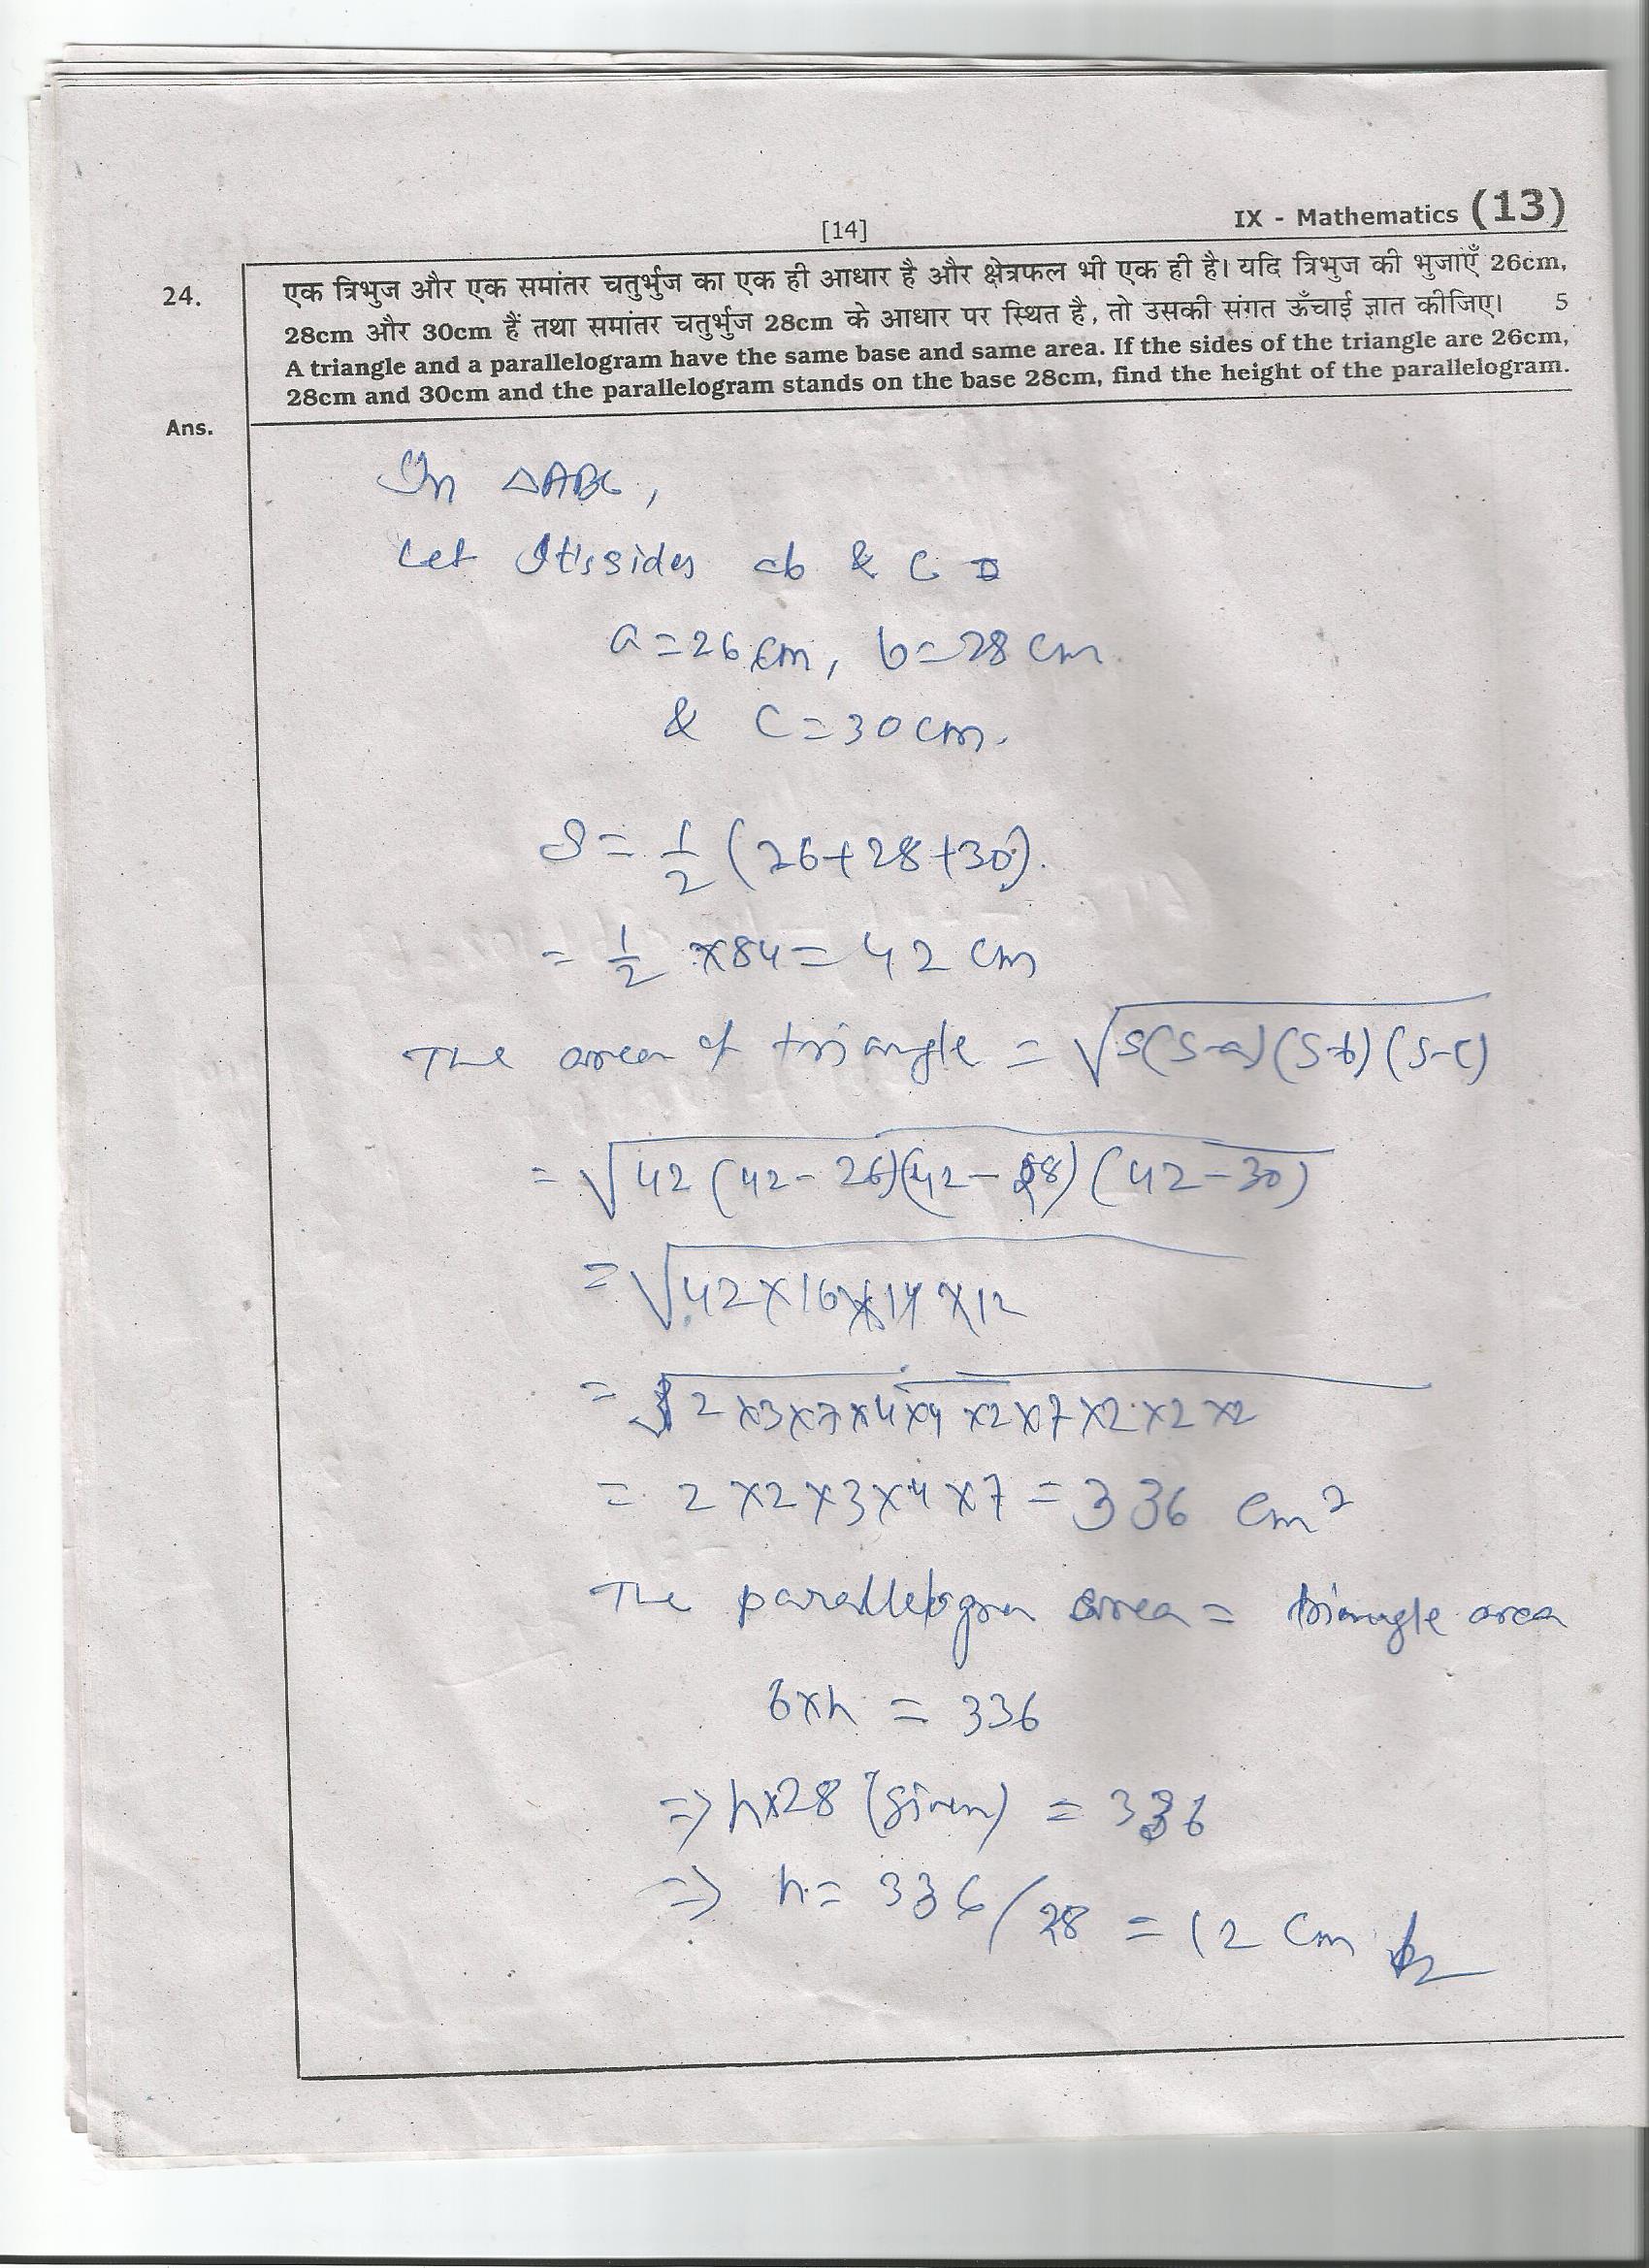 [14]
IX - Mathematics (13)
24.
एक त्रिभुज और एक समांतर चतुर्भुज का एक ही आधार है और क्षेत्रफल भी एक ही है। यदि त्रिभुज की भुजाएँ 26cm,
28cm और 30cm हैं तथा समांतर चतुर्भुज 28cm के आधार पर स्थित है, तो उसकी संगत ऊँचाई ज्ञात कीजिए। 5
A triangle and a parallelogram have the same base and same area. If the sides of the triangle are 26cm,
28cm and 30cm and the parallelogram stands on the base 28cm, find the height of the parallelogram.
Ans.
In △ABC,
Let It's sides ab & C
a=26 cm, b=28 cm.
& C=30 cm.
S= 1/2 (26+28+30).
= 1/2 ×84= 42 cm
The area of triangle = √S(S-a)(S-b)(S-c)
= √42 (42-26)(42-28)(42-30)
= √42×16×14×12
= √2×3×7×4×4×2×7×2×2×2
= 2×2×3×4×7=336 cm²
The parallelogram area= triangle area
b×h = 336
⇒ h×28 (given) = 336
⇒ h= 336/28 = 12 cm